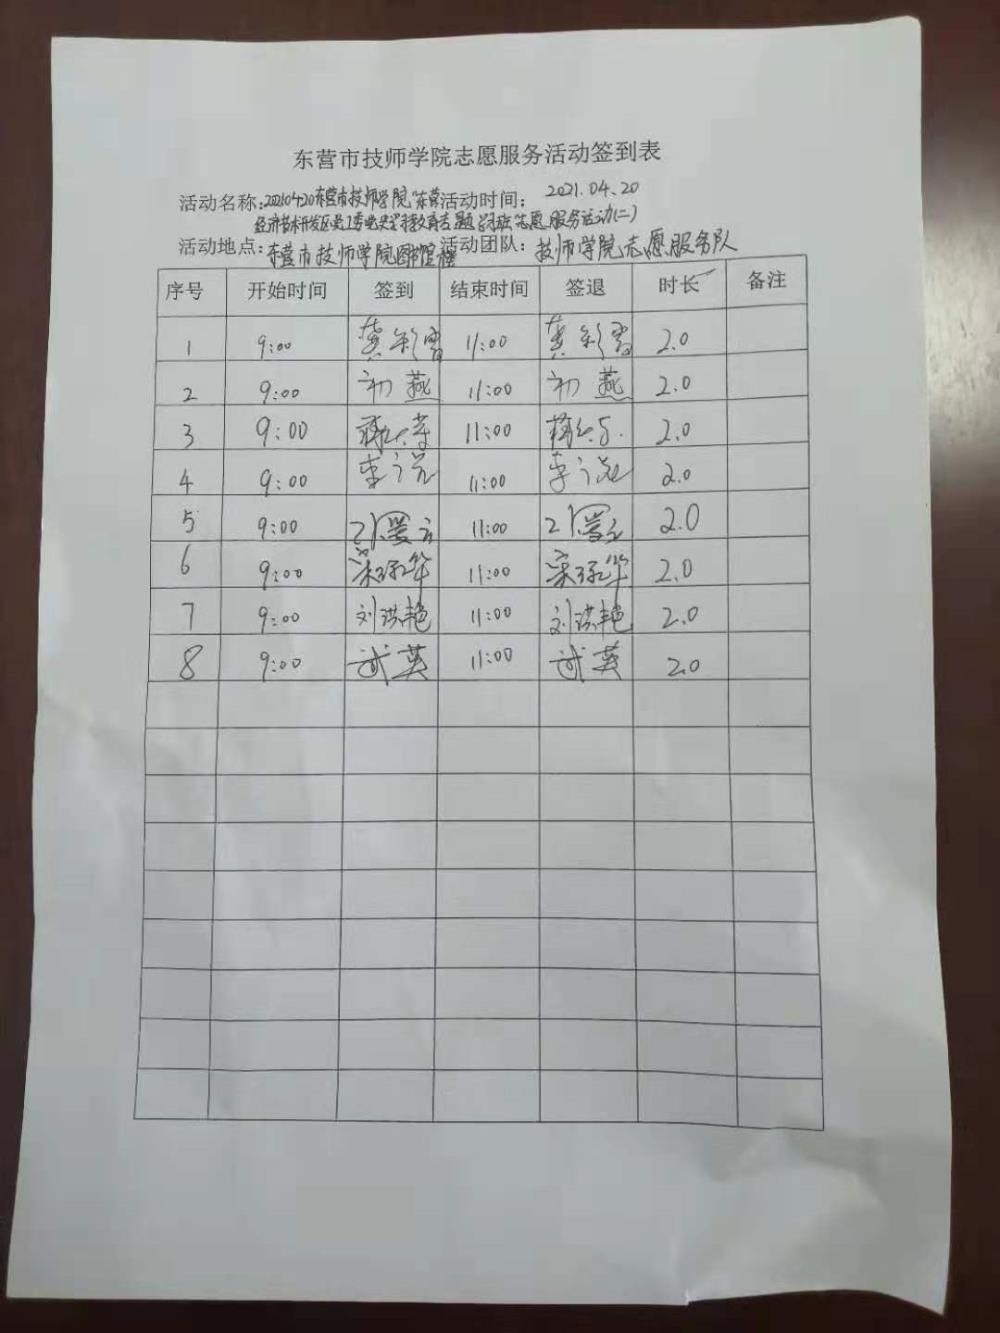 东营市技师学院志愿服务活动签到表
活动名称:20210420东营市技师学院"东营 活动时间: 2021.04.20
经济技术开发区党工委党史学习教育专题学习班"志愿服务活动(二)
活动地点:东营市技师学院图书馆楼 活动团队: 技师学院志愿服务队
序号 开始时间 签到 结束时间 签退 时长 备注
1 9:00 11:00 2.0
2 9:00 初燕 11:00 初燕 2.0
3 9:00 11:00 2.0
4 9:00 11:00 2.0
5 9:00 11:00 2.0
6 9:00 11:00 2.0
7 9:00 刘洪艳 11:00 刘洪艳 2.0
8 9:00 武英 11:00 武英 2.0